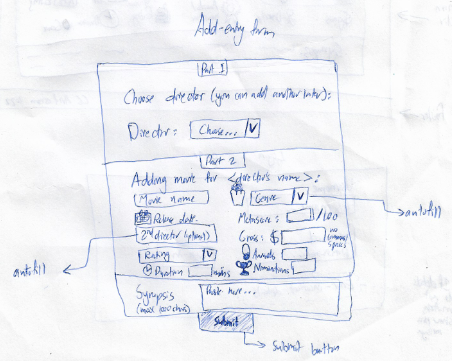 Add-entry form
Part 1
Choose director (you can add another later):
Director: Choose... V
Part 2
Adding movie for <director's name>:
Movie name
Genre V
autofill
Release date
Metascore: /100
2nd director
Gross: $
autofill
Rating V
Awards
Duration
Nominations
Synopsis
(max 1000 chars)
here...
Submit
Submit button